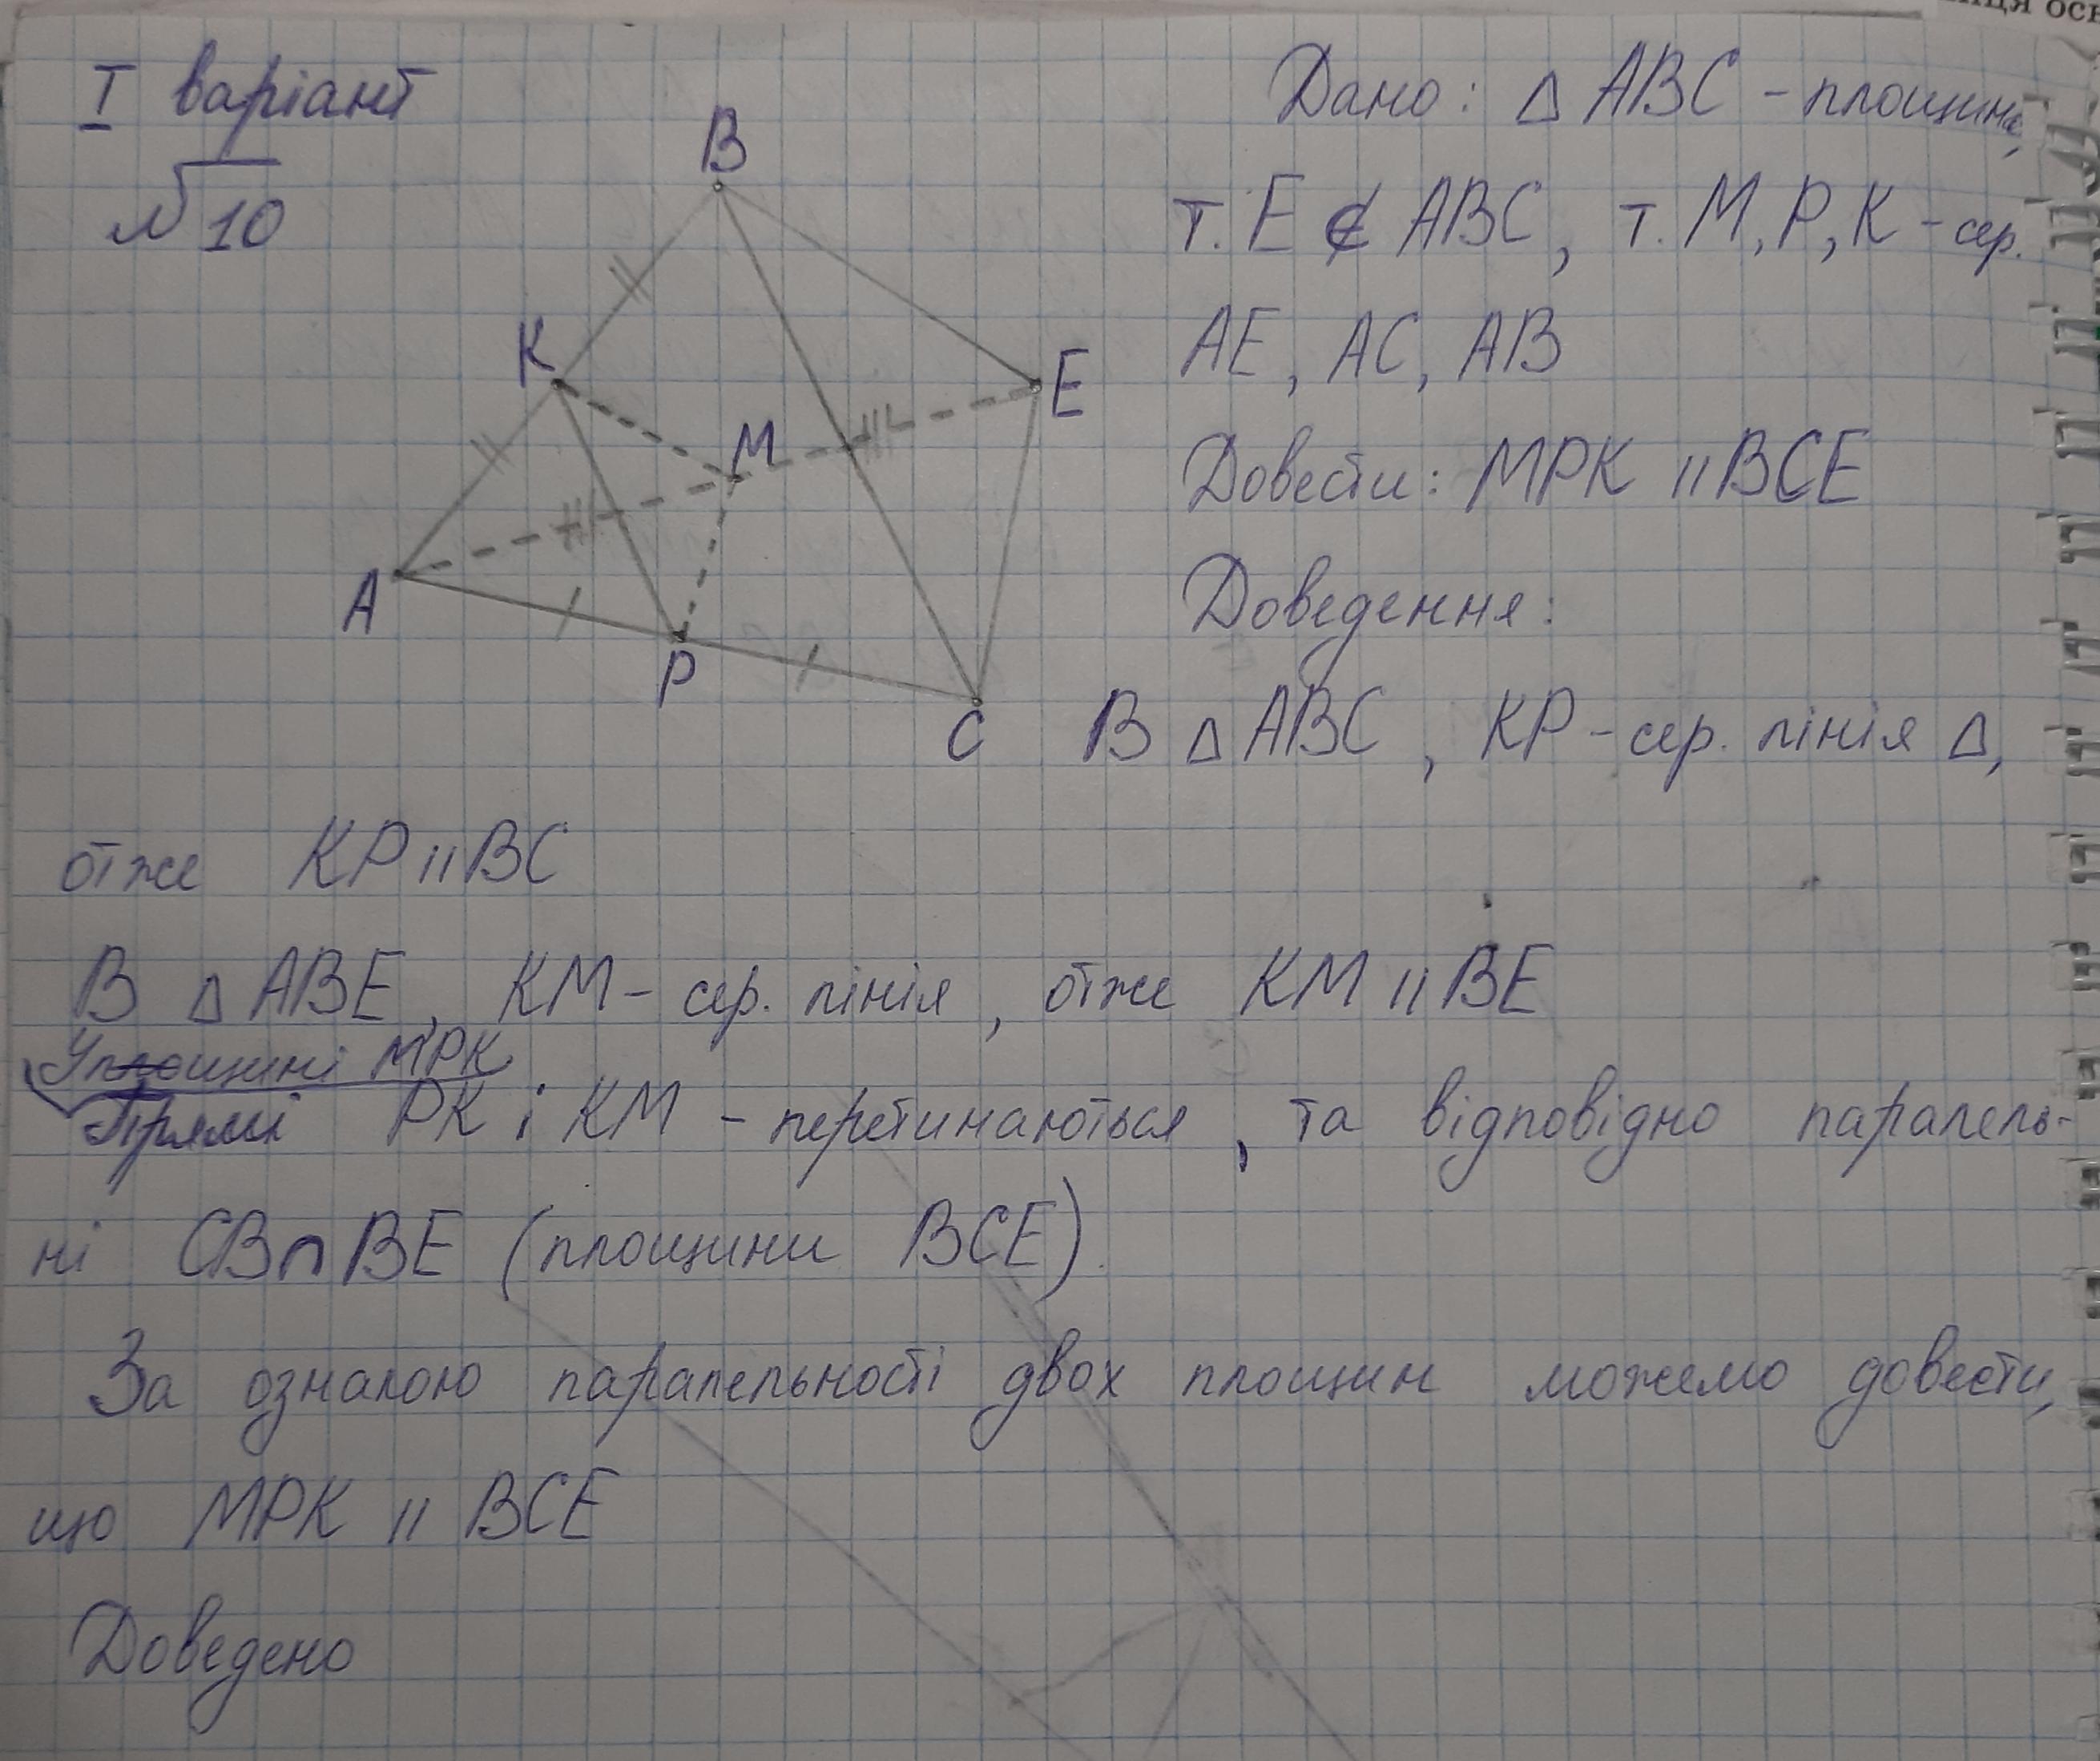 иця осн
I варіант
№10
B
K
M
E
A
P
C
Дано: Δ ABC - площина,
т. E ∉ ABC, т. M, P, K - сер.
AE, AC, AB
Довести: MPK || BCE
Доведення:
В Δ ABC, KP - сер. лінія Δ,
отже KP || BC
В Δ ABE, KM - сер. лінія, отже KM || BE
У площині MPK
Прямі PK і KM - перетинаються, та відповідно паралель-
ні CB∩BE (площини BCE).
За ознакою паралельності двох площин можемо довести,
що MPK || BCE
Доведено